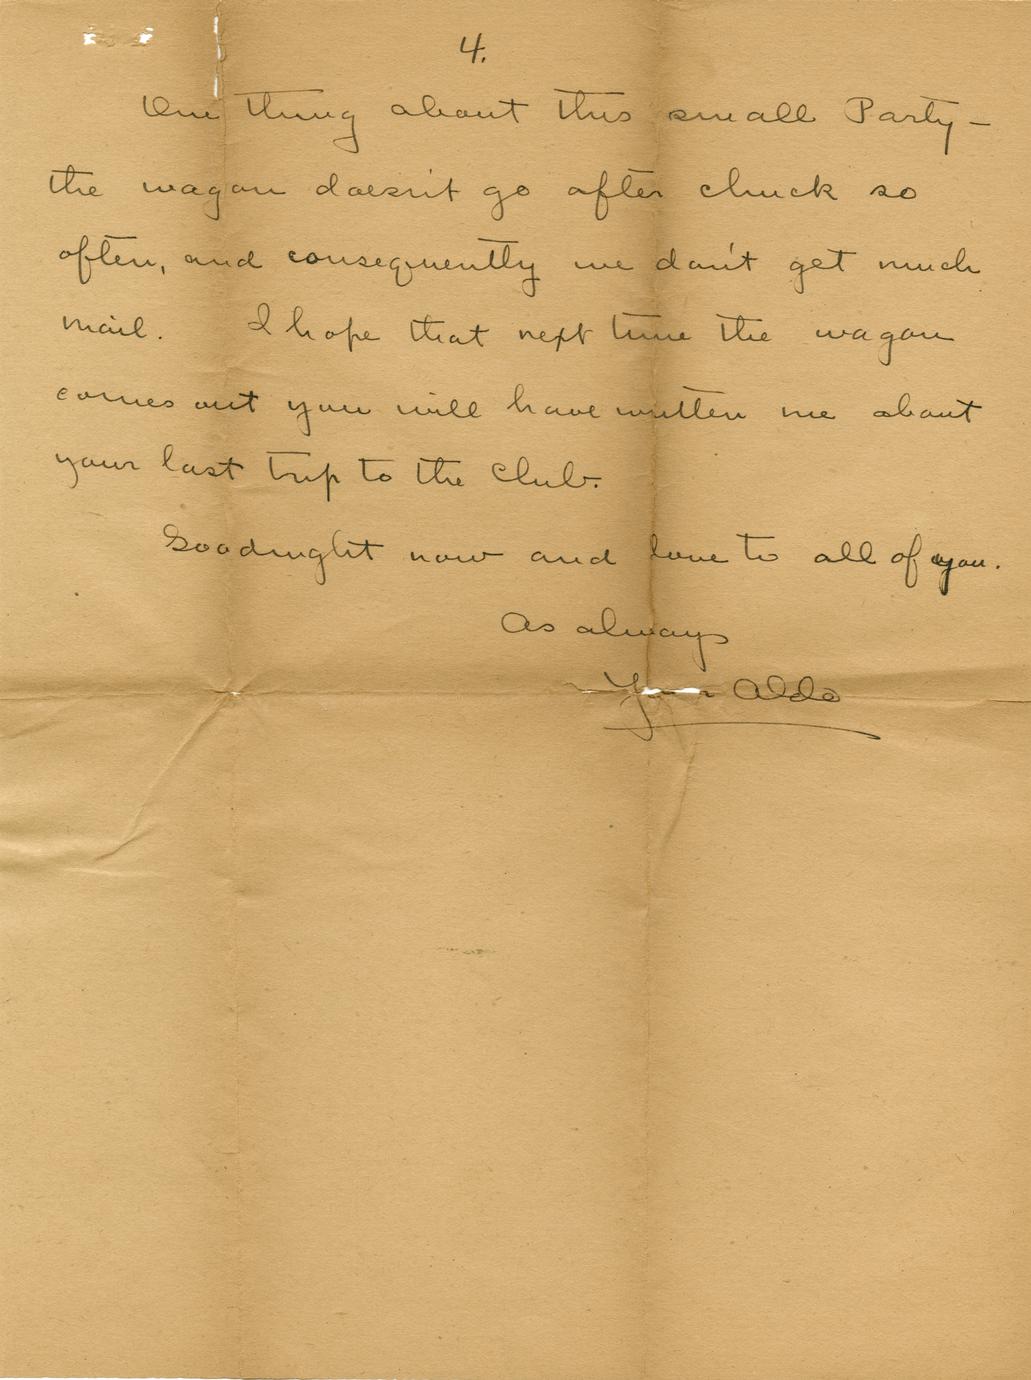 4.
One thing about this small Party —
the wagon doesn't go after chuck so
often, and consequently we don't get much
mail. I hope that next time the wagon
comes out you will have written me about
your last trip to the Club.
Goodnight now and love to all of you.
As always
Your Aldo